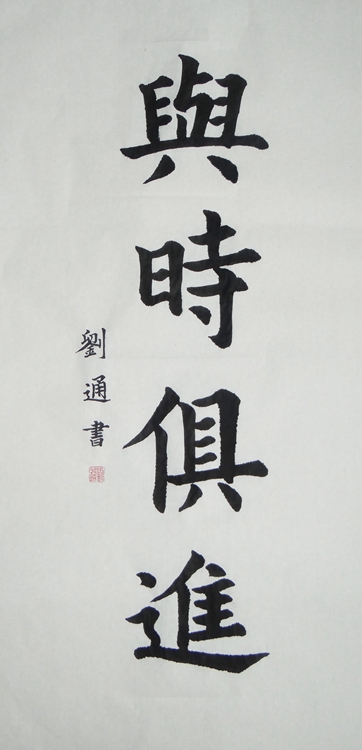 與時俱進
劉通書